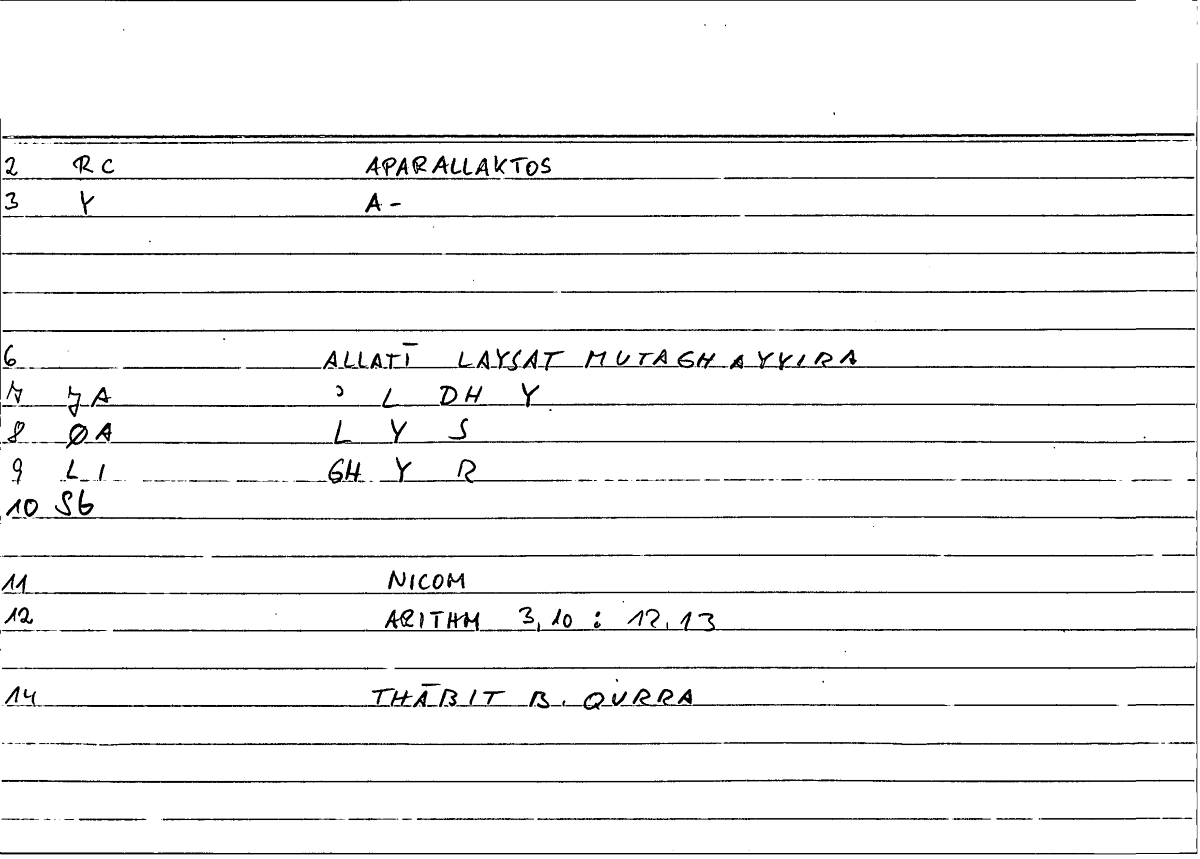 2 RC APARALLAKTOS
3 Y A-
6 ALLATĪ LAYSAT MUTAGHAYYIRA
7 JA ʾ L DH Y
8 ØA L Y S
9 LI GH Y R
10 Sb
11 NICOM
12 ARITHM 3,10 : 12,13
14 THĀBIT B. QURRA